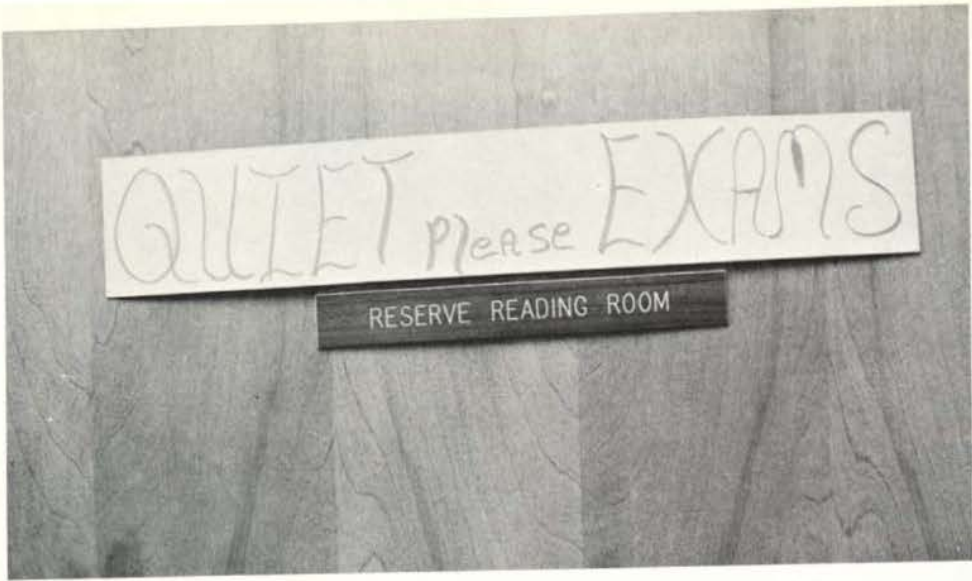 QUIET PleAse EXAMS
RESERVE READING ROOM